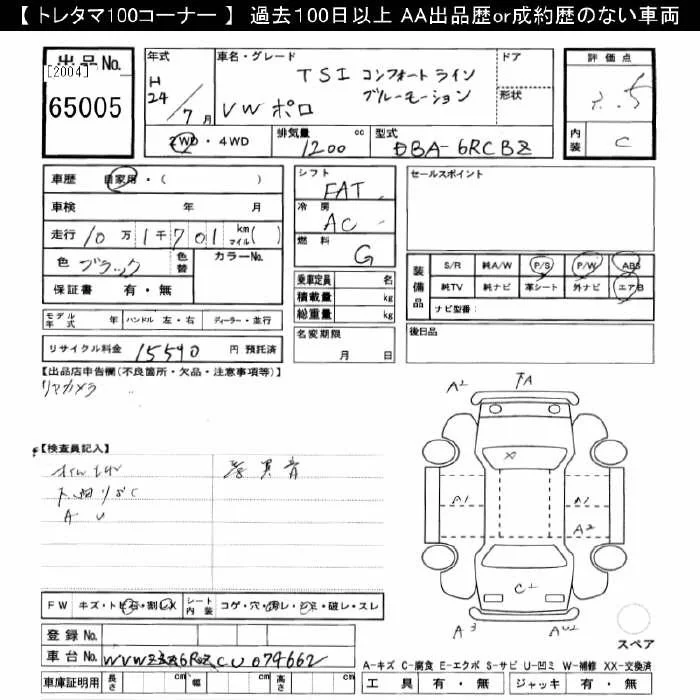 【 トレタマ100コーナー 】 過去100日以上 AA出品歴or成約歴のない車両
出品No.
[2004]
65005
年式
H24/7月
車名・グレード
TSI コンフォートライン
ブルーモーション
VW ポロ
ドア
形状
評価点
内装 C
2WD・4WD
排気量 1200 cc
型式 DBA-6RCBZ
車歴 自家用・( )
車検 年 月
走行 10万1千701 km マイル( )
色 ブラック 色替 カラーNo.
保証書 有・無
シフト FAT
冷房 AC
燃料 G
乗車定員 名
積載量 kg
総重量 kg
セールスポイント
装備品
S/R 純A/W P/S P/W ABS
純TV 純ナビ 革シート 外ナビ エアB
ナビ型番:
モデル年式 年 ハンドル 左・右 ディーラー・並行
リサイクル料金 15540 円 預託済
名変期限
月 日
後日品
【出品店申告欄(不良箇所・欠品・注意事項等)】
リアカメラ
【検査員記入】
A U
異音
A2 FA
X
A1 A1
A2
C1
A3 AU2
スペア
FW キズ・トビ石・割レX シート内装 コゲ・穴・汚レ・シミ・破レ・スレ
登録No.
車台No. WVWZZZ6RZCU074662
車庫証明用 長さ cm 幅 cm 高さ cm
A-キズ C-腐食 E-エクボ S-サビ U-凹ミ W-補修 XX-交換済
工具 有・無 ジャッキ 有・無